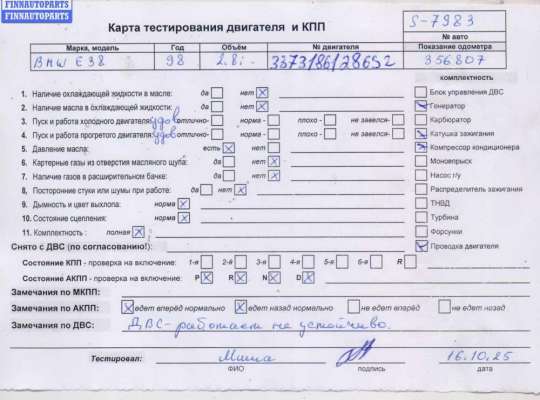 FINNAUTOPARTS
FINNAUTOPARTS
FINNAUTOPARTS
Карта тестирования двигателя и КПП
S-7983
№ авто
Марка, модель Год Объём № двигателя Показание одометра
BMW E38 98 2.8i 33731861/28652 356807
комплектность
1. Наличие охлаждающей жидкости в масле: да нет
Блок управления ДВС
2. Наличие масла в охлаждающей жидкости: да нет
Генератор
3. Пуск и работа холодного двигателя: удов отлично- норма - плохо - не завелся-
Карбюратор
4. Пуск и работа прогретого двигателя: удов отлично- норма - плохо - не завелся-
Катушка зажигания
5. Давление масла: есть нет
Компрессор кондиционера
6. Картерные газы из отверстия масляного щупа: да нет
Моновпрыск
7. Наличие газов в расширительном бачке: да нет
Насос г/у
8. Посторонние стуки или шумы при работе: да нет
Распределитель зажигания
9. Дымность и цвет выхлопа: норма
ТНВД
10. Состояние сцепления: норма
Турбина
11. Комплектность : полная
Форсунки
Снято с ДВС (по согласованию!):
Проводка двигателя
Состояние КПП - проверка на включение: 1-я 2-й 3-й 4-й 5-я 6-я R
Состояние АКПП - проверка на включение: P R N D
Замечания по МКПП:
Замечания по АКПП: едет вперёд нормально едет назад нормально не едет вперёд не едет назад
Замечания по ДВС: ДВС - работает не устойчиво.
Тестировал: Миша 16.10.25
ФИО подпись дата